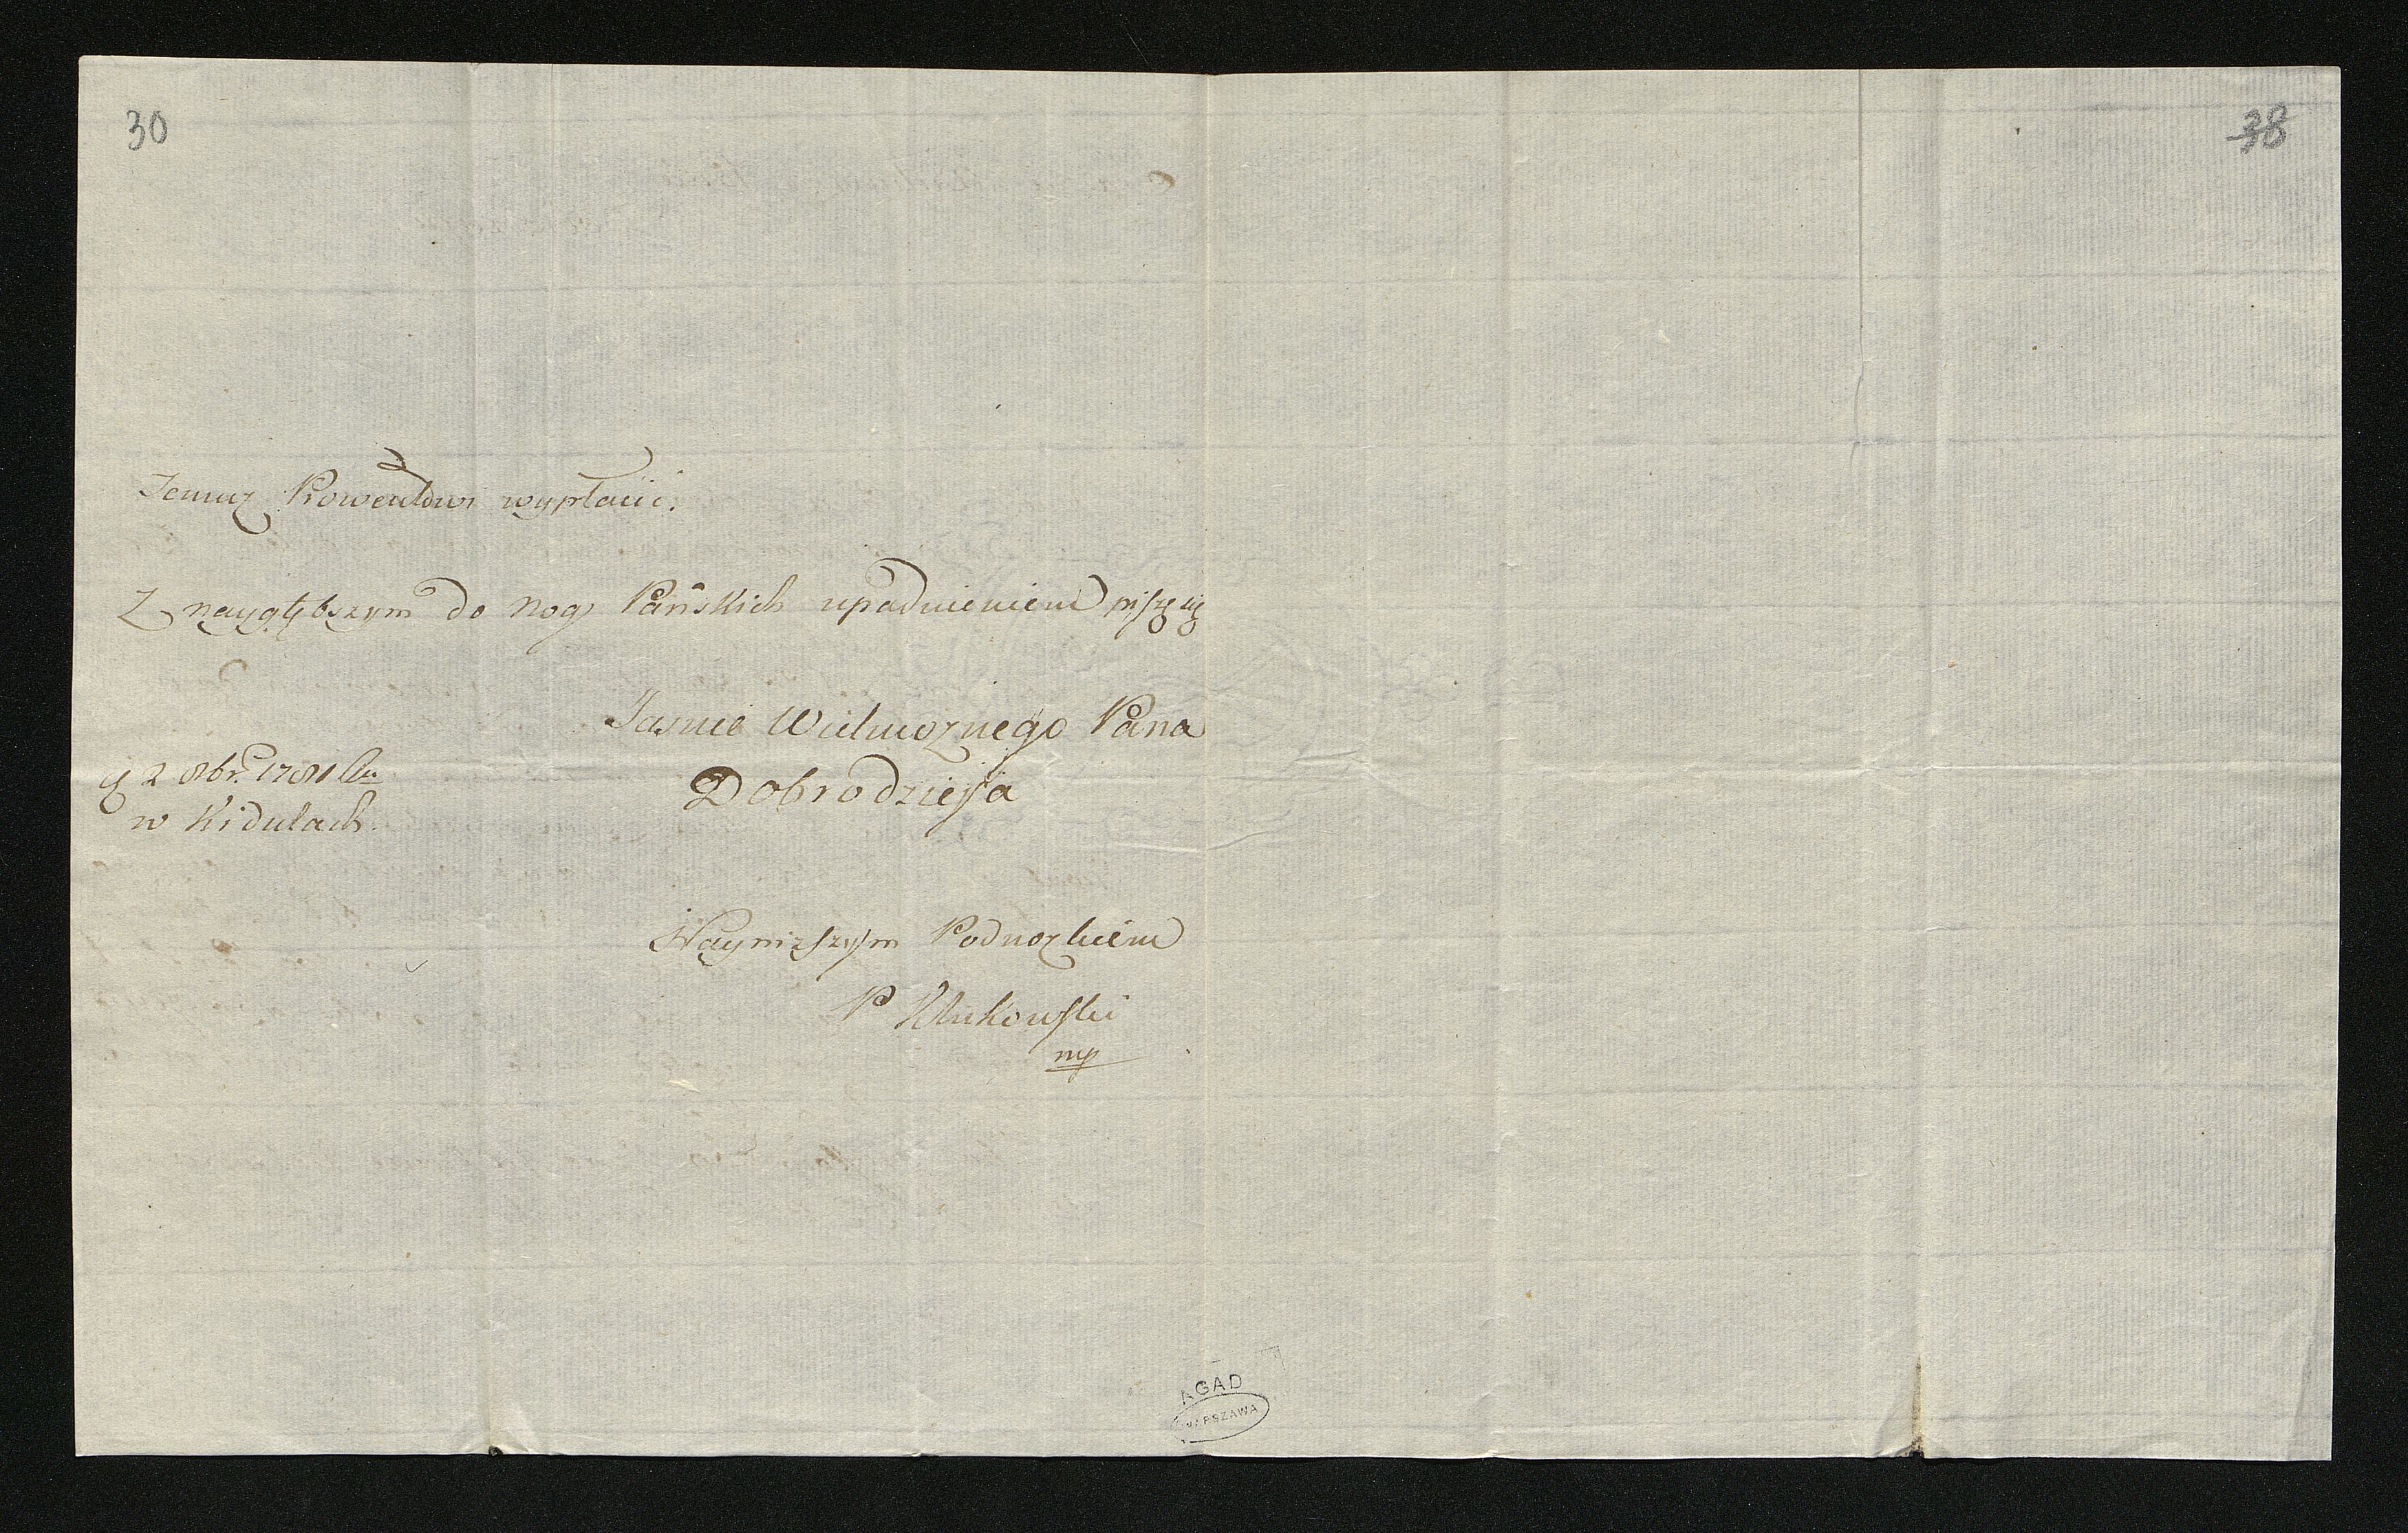 30
38
Temuz Prowentowi wypłacić.
Z naygłębszym do nog Pańskich upadnieniem piszę się
Jasnie Wielmoznego Pana
Dobrodzieja
d 2 8br. 1781
w Kidulach.
Nayniższym Podnozkiem
P Klukowski
mp
AGAD
WARSZAWA